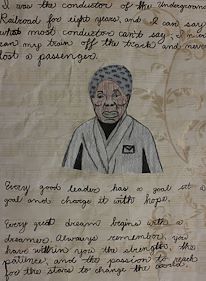 I was the conductor of the Underground
Railroad for eight years, and I can say
what most conductors can't say; I never
ran my train off the track and never
lost a passenger.
Every good leader has a goal set a
goal and charge it with hope.
Every great dream begins with a
dreamer. Always remember, you
have within you the strength, the
patience, and the passion to reach
for the stars to change the world.